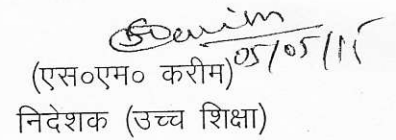 05/05/15
(एस०एम० करीम)
निदेशक (उच्च शिक्षा)